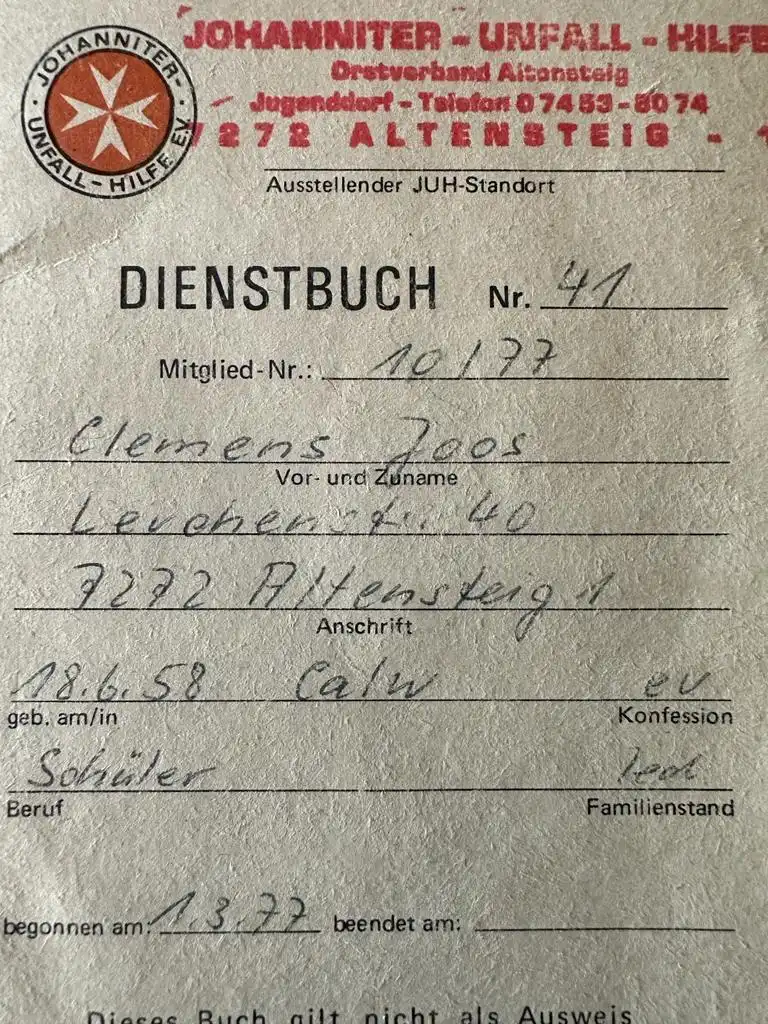 JOHANNITER-UNFALL-HILFE E.V.
JOHANNITER - UNFALL - HILFE
Orstverband Altensteig
Jugenddorf - Telefon 0 74 53 - 80 74
7272 ALTENSTEIG - 1
Ausstellender JUH-Standort
DIENSTBUCH Nr. 41
Mitglied-Nr.: 10/77
Clemens Joos
Vor- und Zuname
Lerchenstr. 40
7272 Altensteig 1
Anschrift
18.6.58 Calw ev
geb. am/in Konfession
Schüler led
Beruf Familienstand
begonnen am: 1.3.77 beendet am:
Dieses Buch gilt nicht als Ausweis